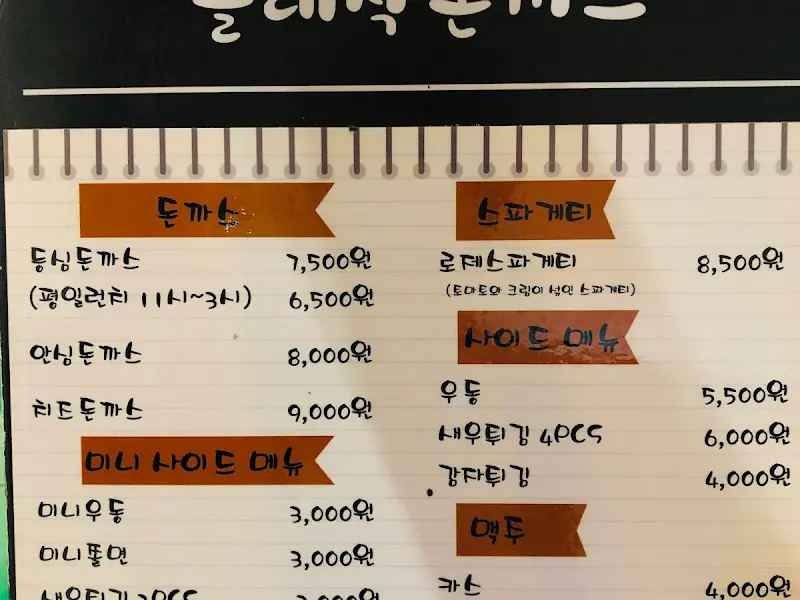 클래식 돈까스
돈까스
등심돈까스 7,500원
(평일런치 11시~3시) 6,500원
안심돈까스 8,000원
치즈돈까스 9,000원
미니 사이드 메뉴
미니우동 3,000원
미니쫄면 3,000원
새우튀김 2PCS 3,000원
스파게티
로제스파게티 8,500원
(토마토와 크림이 섞인 스파게티)
사이드 메뉴
우동 5,500원
새우튀김 4PCS 6,000원
감자튀김 4,000원
맥주
카스 4,000원